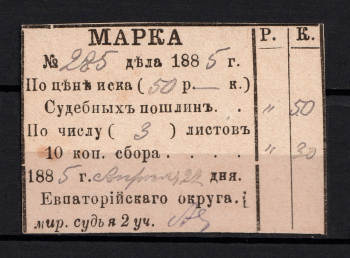 МАРКА Р. К.
№ 285 дѣла 1885 г.
По цѣнѣ иска (50 р. — к.)
Судебныхъ пошлинъ. . „ 50
По числу ( 3 ) листовъ
10 коп. сбора . . . . . „ 30
1885 г. Апрѣля 22 дня.
Евпаторійскаго округа.
мир. судья 2 уч.